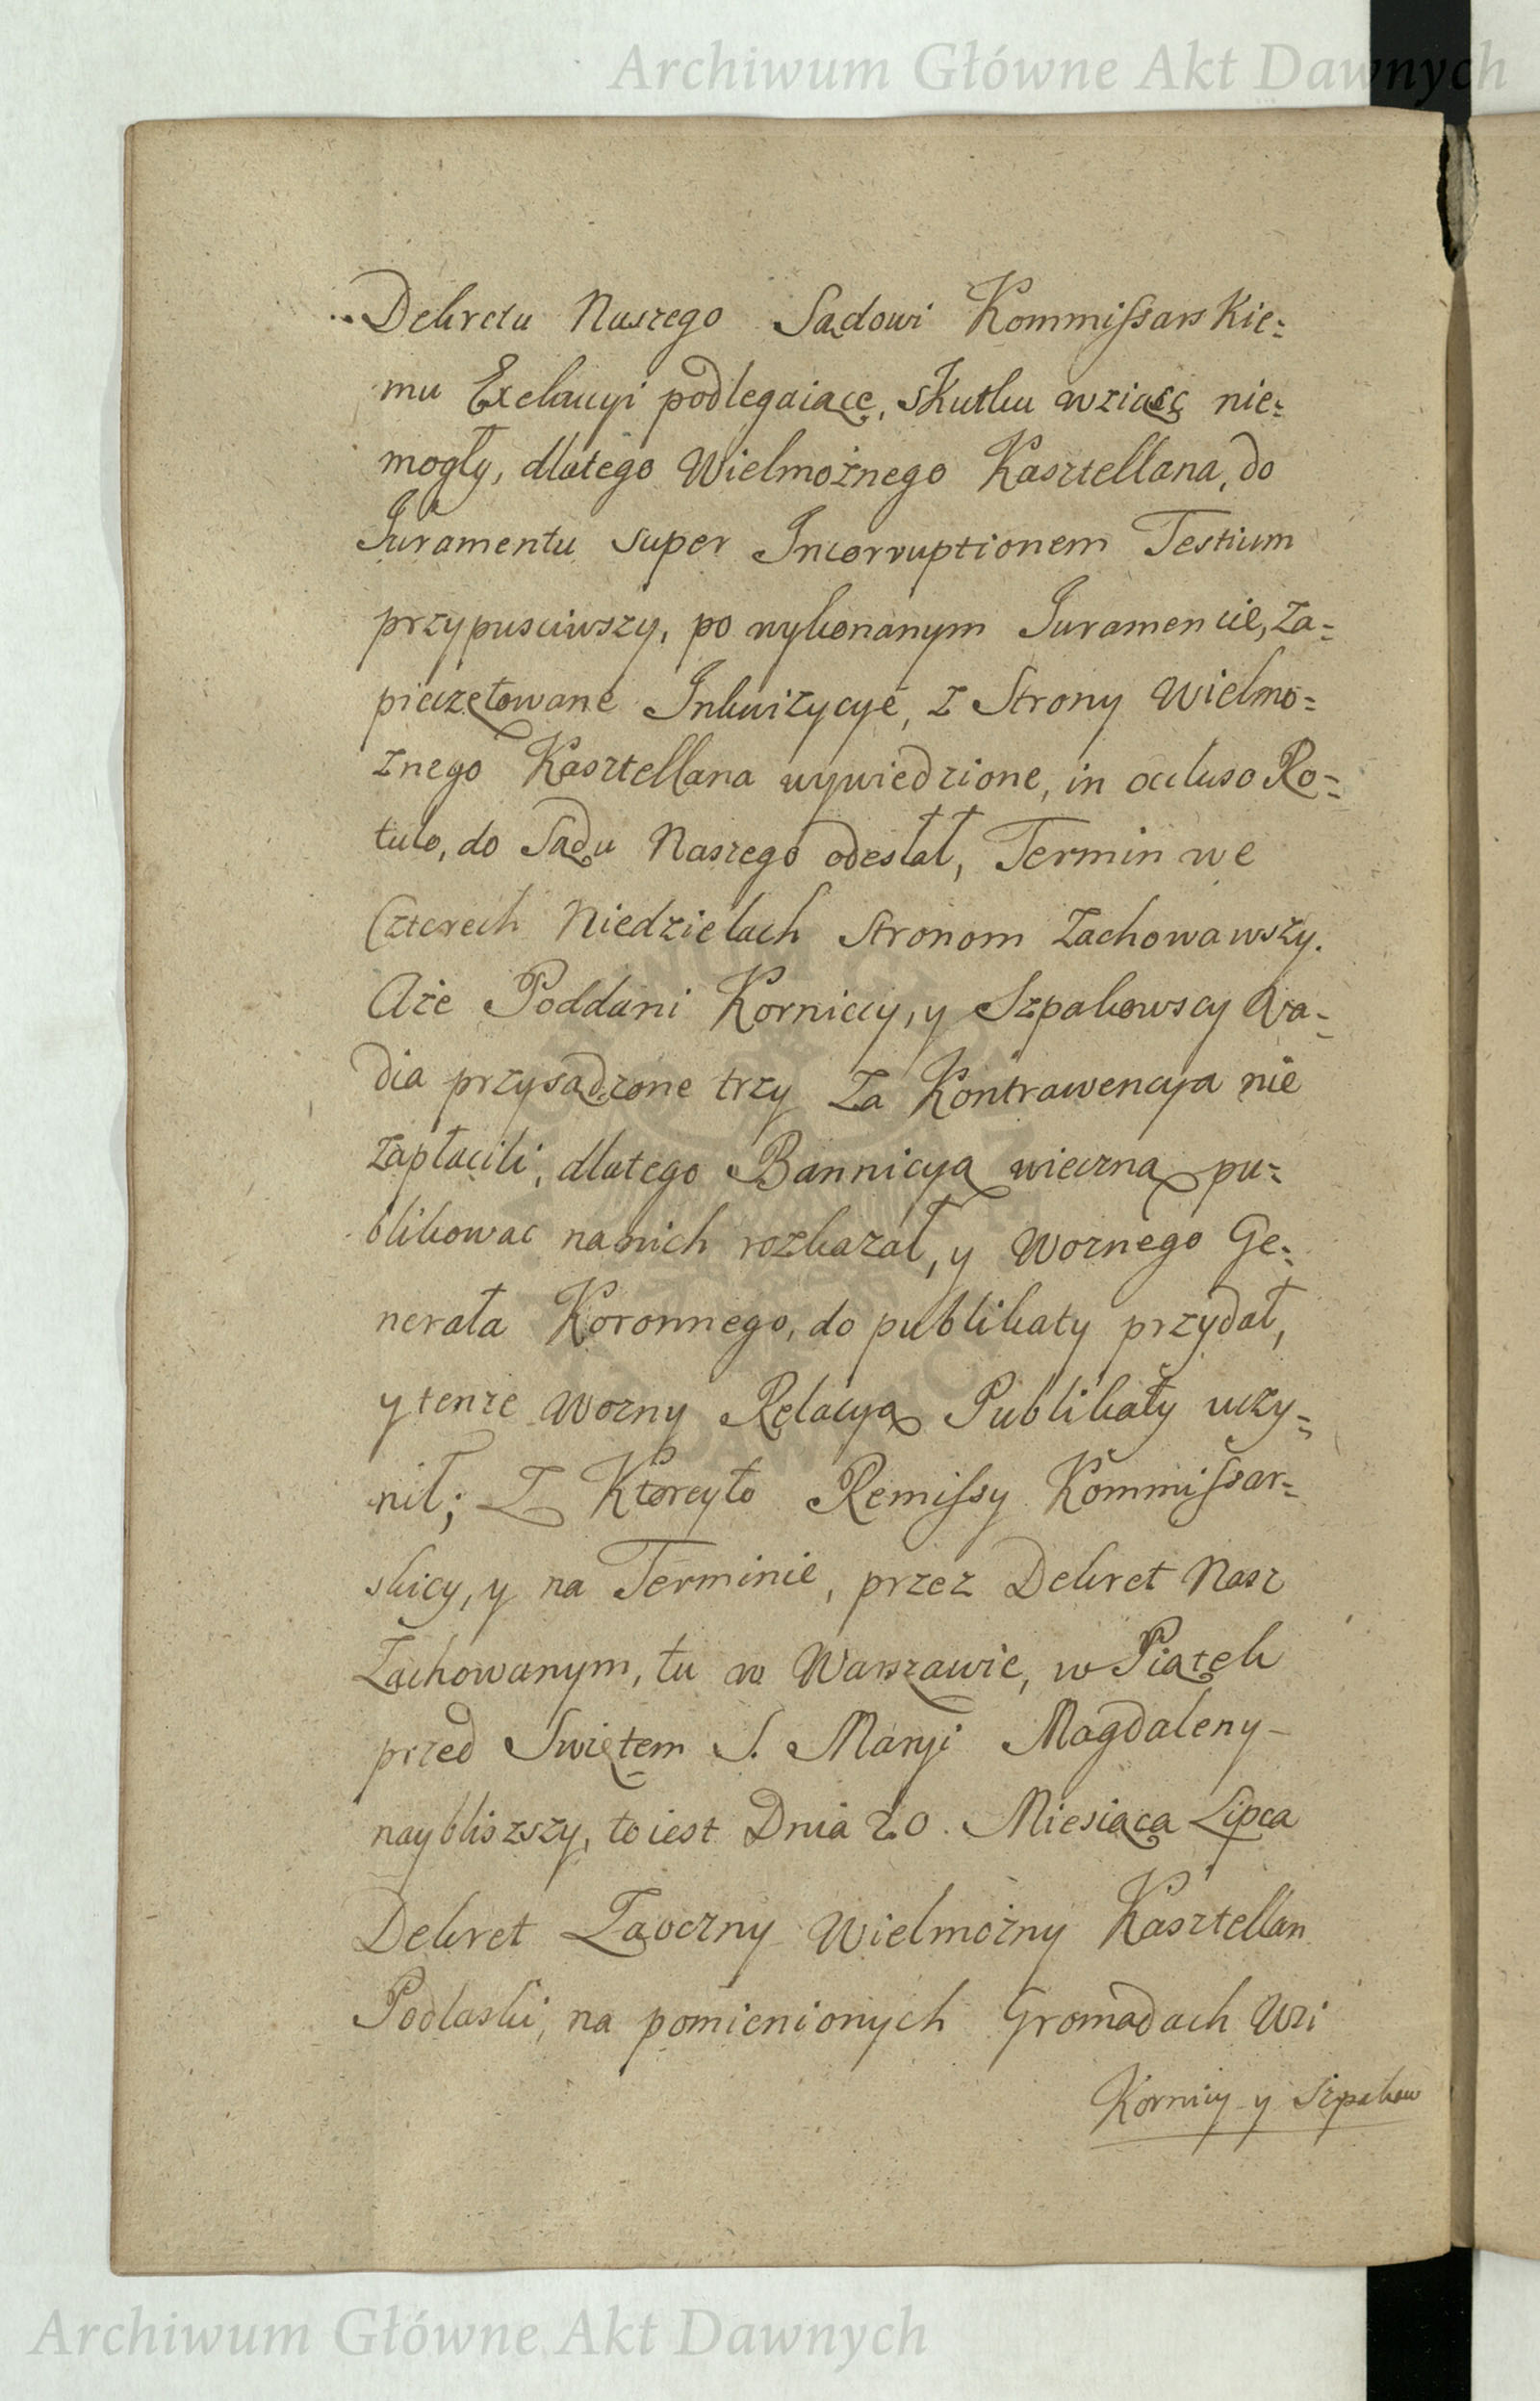 Archiwum Główne Akt Dawnych
Dekretu Naszego Sądowi Kommissarskie=
mu Exekucyi podlegaiące, skutku wziąść nie=
mogły, dlatego Wielmożnego Kasztellana, do
Juramentu super Incorruptionem Testium
przypusciwszy, po wykonanym Juramencie, za=
pieczętowane Inkwizycye, z Strony Wielmo=
znego Kasztellana wywiedzione, in occluso Ro=
tulo, do Sądu Naszego odesłał, Termin we
Czterech Niedzielach stronom zachowawszy.
Aże Poddani Korniccy, y Szpakowscy Va=
dia przysądzone trzy za Kontrawencya nie
zapłacili, dlatego Bannicyą wieczną pu=
blikowac na nich rozkazał, y Woznego Ge=
nerała Koronnego, do publikaty przydał,
y tenze Wozny Relacyą Publikaty uczy=
nił; Z Ktoreyto Remissy Kommissar=
skiey, y na Terminie, przez Dekret Nasz
Zachowanym, tu w Warszawie, w Piątek
przed Swiętem S. Maryi Magdaleny
naybliszszy, to iest Dnia 20. Miesiąca Lipca
Dekret Zaoczny Wielmożny Kasztellan
Podlaski, na pomienionych Gromadach Wsi
Kornicy y Szpakow
Archiwum Główne Akt Dawnych